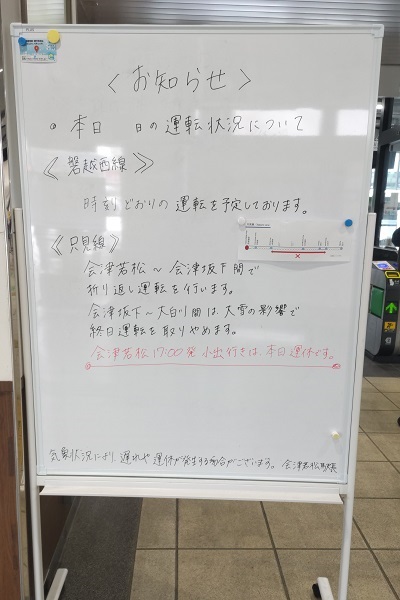 〈お知らせ〉
◦ 本日 日の運転状況について
《磐越西線》
時刻どおりの運転を予定しております。
《只見線》
会津若松～会津坂下間で
折り返し運転を行います。
会津坂下～大白川間は、大雪の影響で
終日運転を取りやめます。
会津若松17:00発 小出行きは、本日運休です。
気象状況により、遅れや運休が発生する場合がございます。会津若松駅長